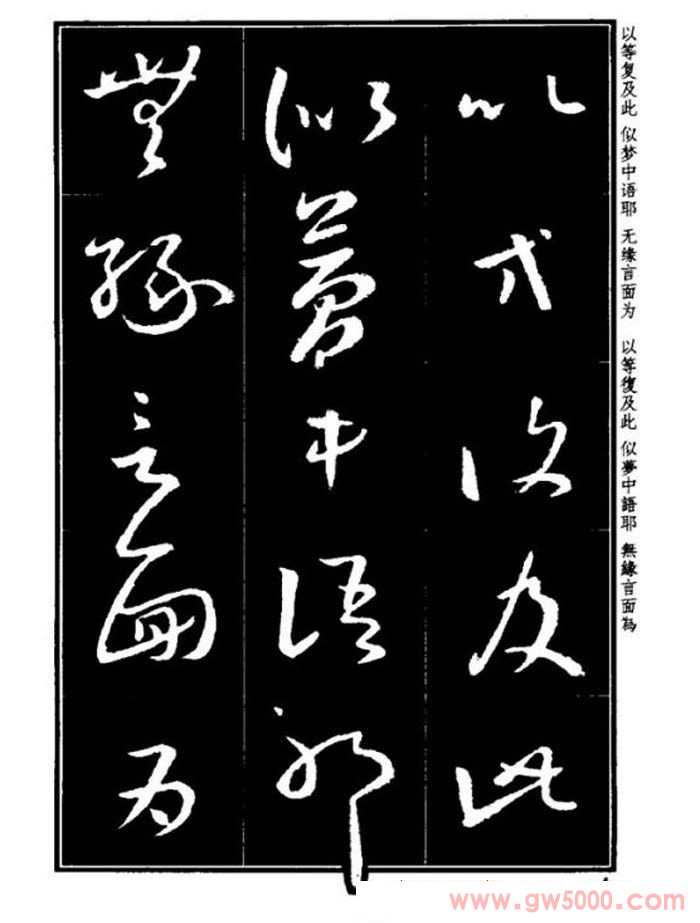 以等復及此
似夢中語耶
無緣言面為
以等复及此 似梦中语耶 无缘言面为
以等復及此 似夢中語耶 無緣言面為
www.gw5000.com